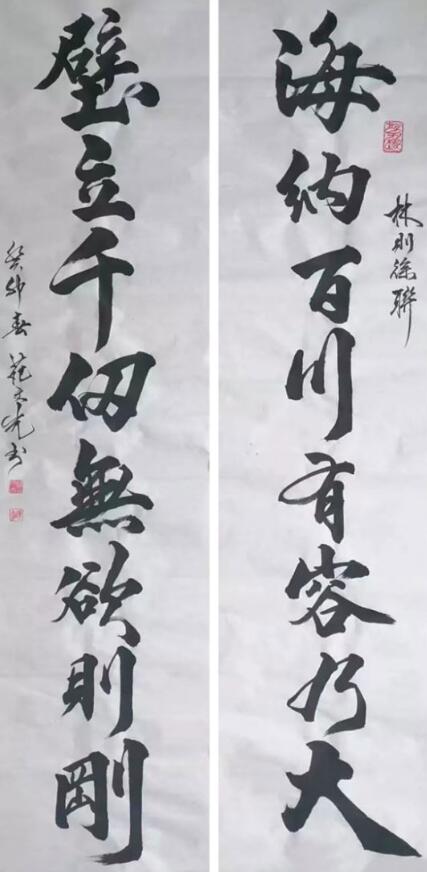 海纳百川有容乃大
林则徐联
壁立千仞無欲則剛
癸卯春范文光书